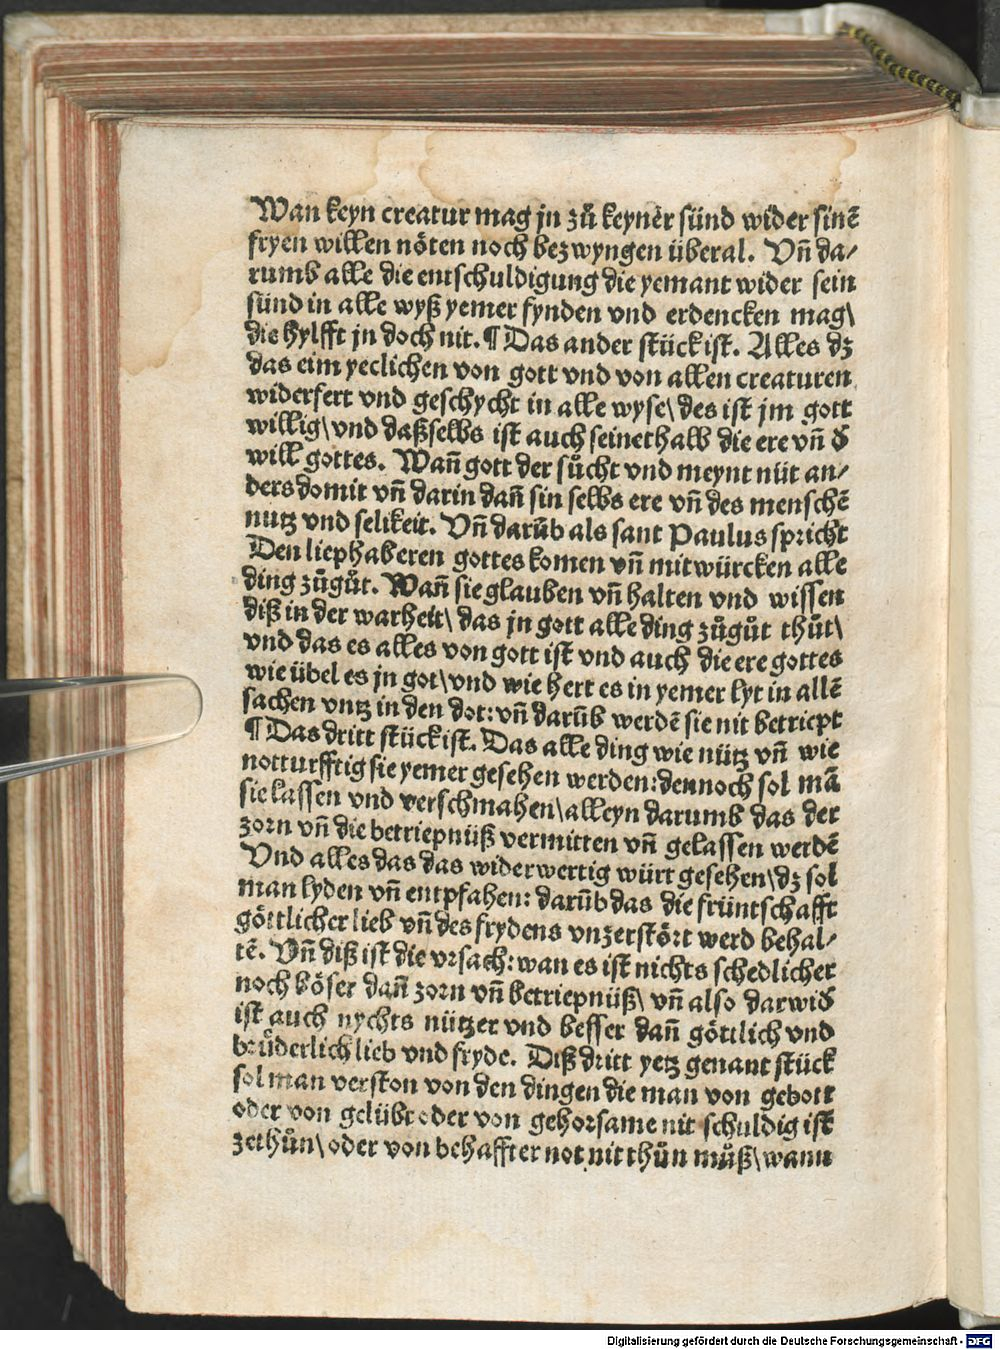 Wan keyn creatur mag jn zů keyner sünd wider sinē
fryen willen nöten noch bezwyngen überal. Vñ da⸗
rumb alle die entschuldigung die yemant wider sein
sünd in alle wyß yemer fynden vnd erdencken mag\
die hylfft jn doch nit. ¶ Das ander stück ist. Alles dz
das eim yeclichen von gott vnd von allen creaturen
widerfert vnd geschycht in alle wyse\ des ist jm gott
willig\ vnd daßselbs ist auch seinethalb die ere vñ đ
will gottes. Wañ gott der sůcht vnd meynt nüt an⸗
ders domit vñ darin dañ sin selbs ere vñ des menschē
nutz vnd selikeit. Vñ darūb als sant Paulus spricht
Den liephaberen gottes komen vñ mitwürcken alle
ding zůgůt. Wañ sie glauben vñ halten vnd wissen
diß in der warheit\ das jn gott alle ding zůgůt thůt\
vnd das es alles von gott ist vnd auch die ere gottes
wie übel es jn got\ vnd wie hert es in yemer lyt in allē
sachen vntz in den dot: vñ darūb werdē sie nit betriept
¶ Das dritt stück ist. Das alle ding wie nütz vñ wie
notturfftig sie yemer gesehen werden: dennoch sol mā
sie lassen vnd verschmahen\ alleyn darumb das der
zorn vñ die betriepnüß vermitten vñ gelassen werdē
Vnd alles das das widerwertig würt gesehen\ dz sol
man lyden vñ entpfahen: darūb das die früntschafft
göttlicher lieb vñ des frydens vnzerstört werd behal⸗
tē. Vñ diß ist die vrsach: wan es ist nichts schedlicher
noch böser dañ zorn vñ betriepnüß\ vñ also darwiđ
ist auch nychts nützer vnd besser dañ göttlich vnd
brůderlich lieb vnd fryde. Diß dritt yetz genant stück
sol man verston von den dingen die man von gebott
oder von gelübt oder von gehorsame nit schuldig ist
zethůn\ oder von behaffter not nit thůn můß\ wann
Digitalisierung gefördert durch die Deutsche Forschungsgemeinschaft - DFG